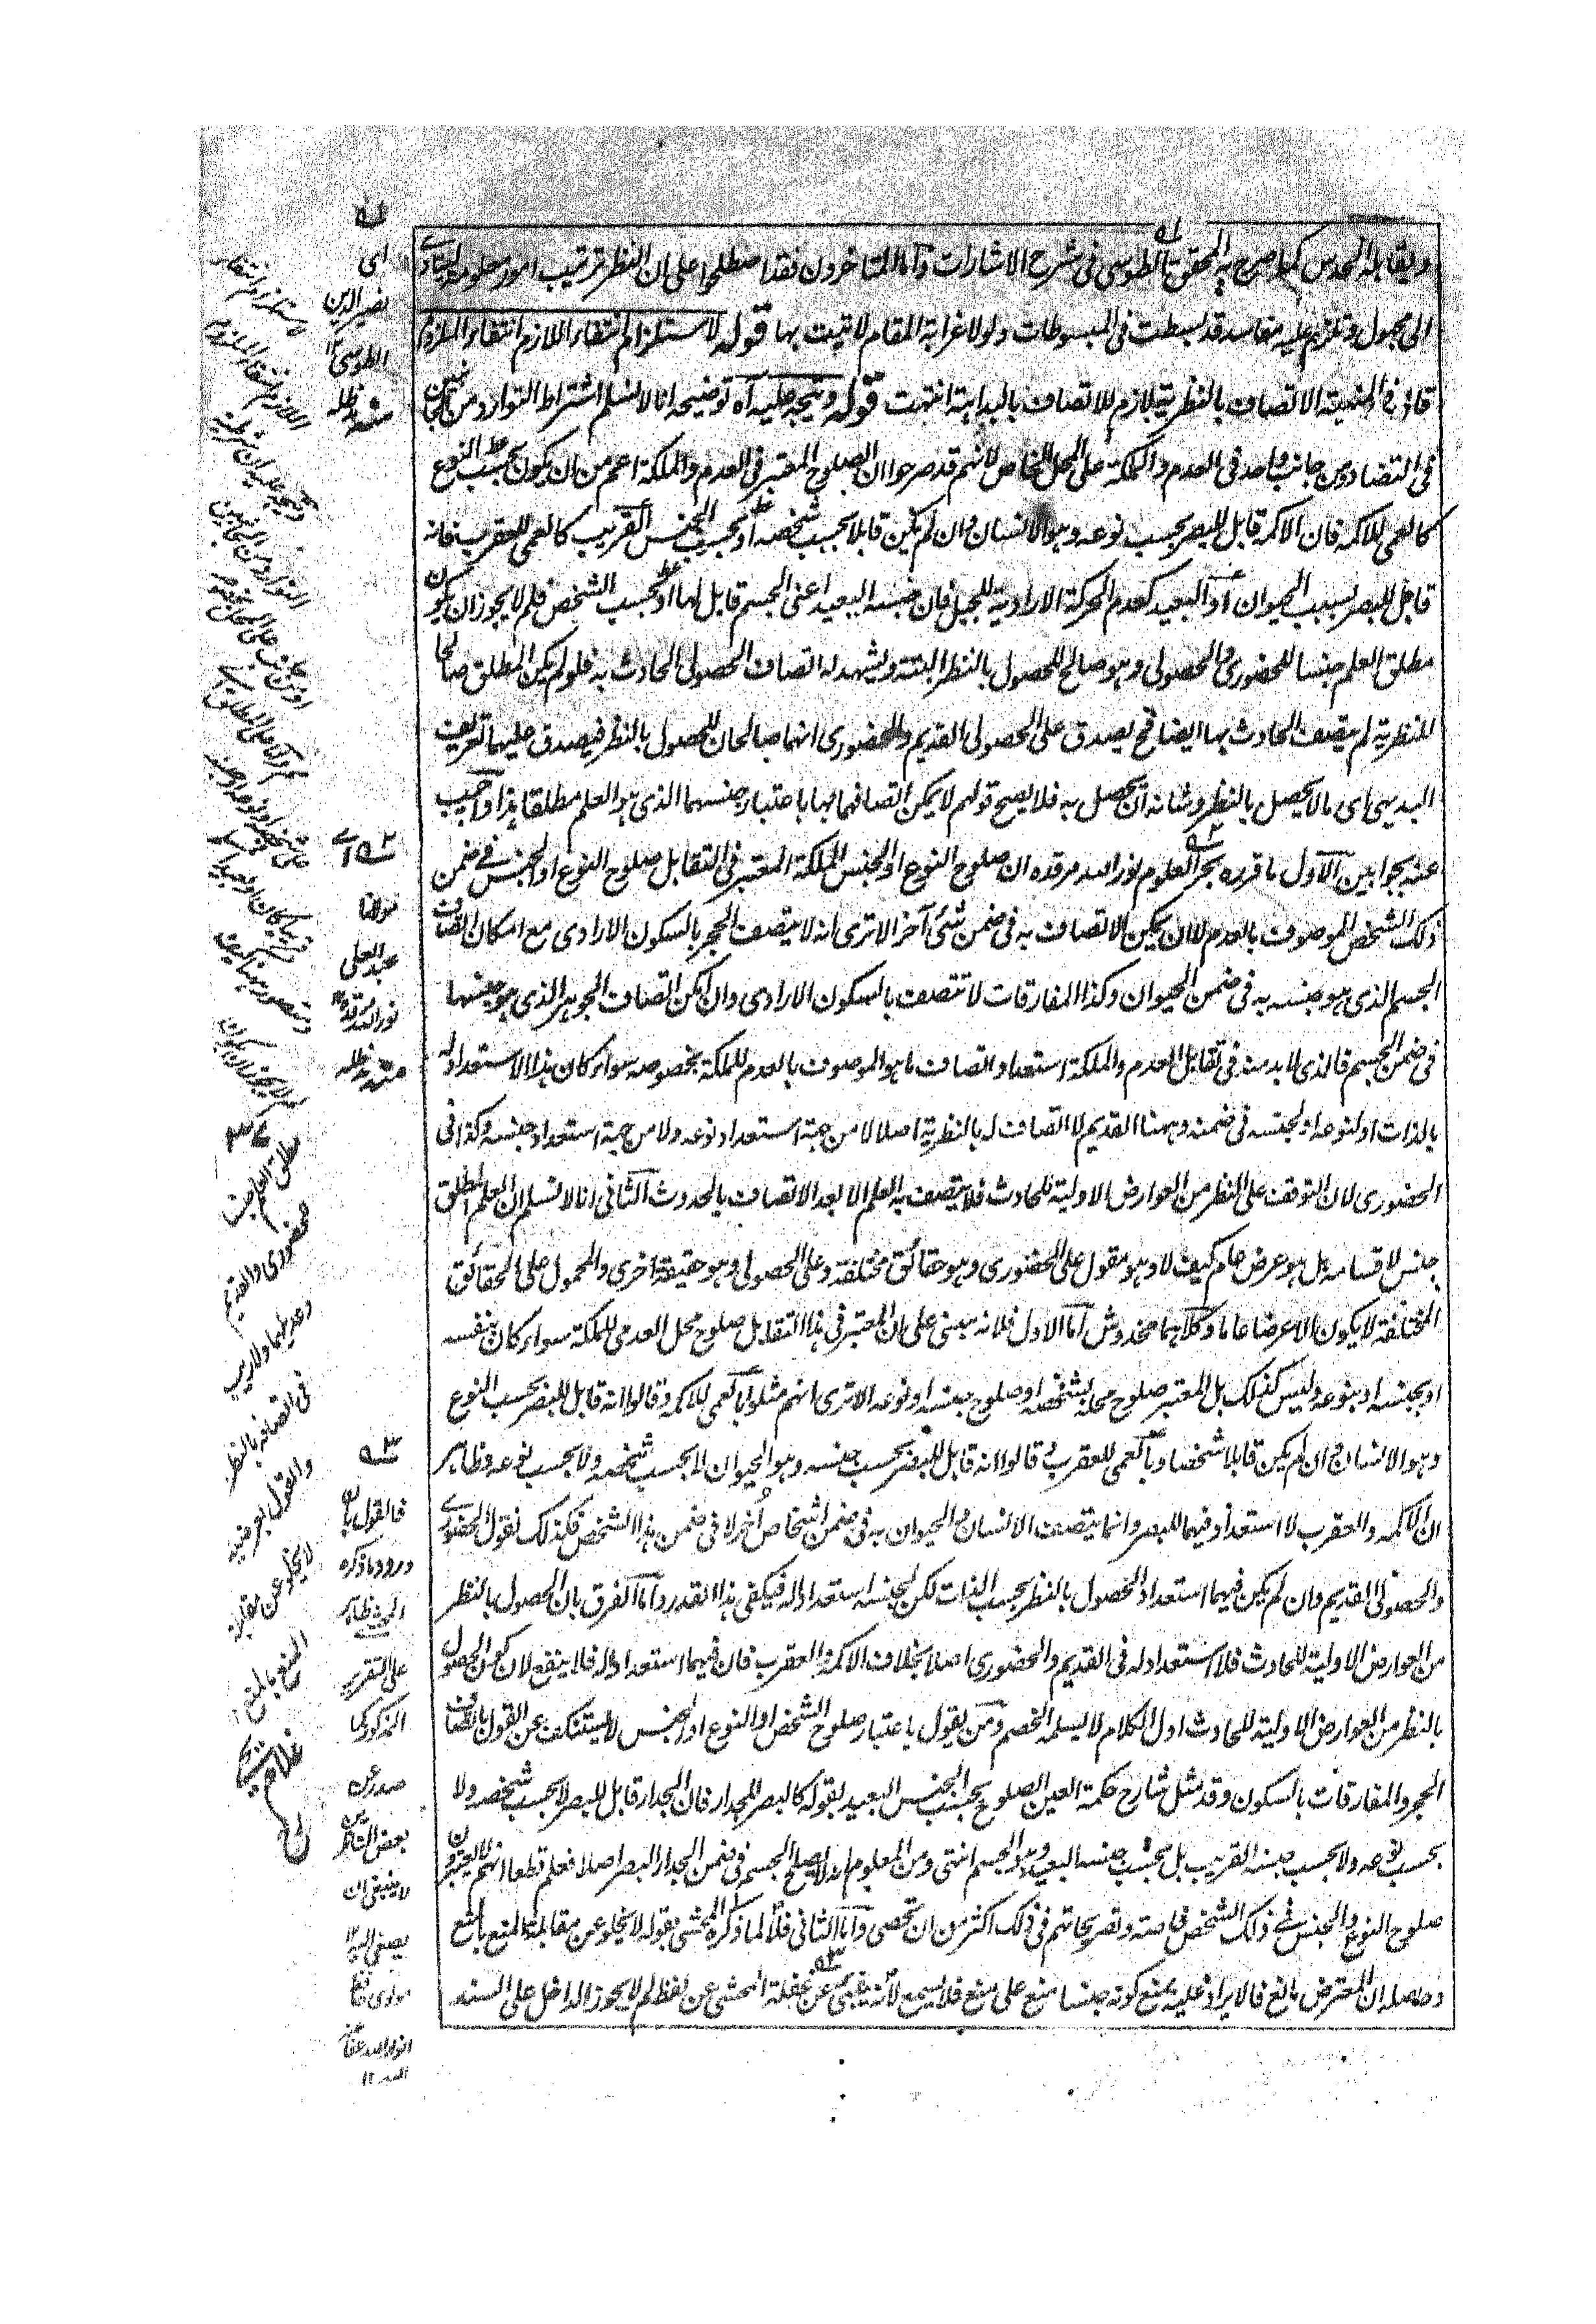 ويقابله الحدس كما صرح به المحقق الطوسى فى شرح الاشارات واما المتاخرون فقد اصطلحوا على ان النظر ترتيب امور معلومة ليتادى
الى مجهول وتلزم عليه مفاسد قد بسطت فى المبسوطات ولولا غرابة المقام لاتيت بها قوله لاستلزام انتفاء اللازم انتفاء الملزوم
قال فى المنهية الاتصاف بالنظرية لازم للاتصاف بالبداهة انتهت قوله ويتجه عليه آه توضيحه انا لا نسلم اشتراط التوارد من الجانبين
فى التضاد ومن جانب واحد فى العدم والملكة على المحل الخاص لانهم قد صرحوا ان الصلوح المعتبر فى العدم والملكة اعم من ان يكون بحسب النوع
كالعمى للاكمه فان الاكمه قابل للبصر بحسب نوعه وهو الانسان وان لم يكن قابلا بحسب شخصه او بحسب الجنس القريب كالعمى للعقرب فانه
قابل للبصر بسبب الحيوان او البعيد كعدم الحركة الارادية للجبل فان جنسه البعيد اعنى الجسم قابل لها او بحسب الشخص فلم لا يجوز ان يكون
مطلق العلم جنسا للحضورى والحصولى وهو صالح للحصول بالنظر البتة ويشهد له اتصاف الحصولى الحادث به فلو لم يكن المطلق صالحا
للنظرية لم يتصف الحادث بها ايضا فح يصدق على الحصولى القديم والحضورى انهما صالحان للحصول بالنظر فيصدق عليهما تعريف
البديهى اى ما لا يحصل بالنظر وشانه ان يحصل به فلا يصح قولهم لا يمكن اتصافهما بها باعتبار جنسهما الذى هو العلم مطلقا هذا واجيب
عنه بجوابين الاول ما قرره بحر العلوم نور الله مرقده ان صلوح النوع او الجنس للملكة المعتبر فى التقابل صلوح النوع او الجنس فى ضمن
ذلك الشخص الموصوف بالعدم لا ان يمكن الاتصاف به فى ضمن شئ آخر الا ترى انه لا يتصف الحجر بالسكون الارادى مع امكان اتصاف
الجسم الذى هو جنسه به فى ضمن الحيوان وكذا المفارقات لا تتصف بالسكون الارادى وان امكن اتصاف الجوهر الذى هو جنسها
فى ضمن الجسم فالذى لا بد منه فى تقابل العدم والملكة استعداد اتصاف ما هو الموصوف بالعدم للملكة بخصوصه سواء كان هذا الاستعداد له
بالذات او لنوعه او لجنسه فى ضمنه وههنا القديم لا اتصاف له بالنظرية اصلا لا من جهة استعداد نوعه ولا من جهة استعداد جنسه وكذا فى
الحضورى لان التوقف على النظر من العوارض الاولية للحادث فلا يتصف به العلم الا بعد الاتصاف بالحدوث الثانى انا لا نسلم ان العلم المطلق
جنس لاقسامه بل هو عرض عام كيف لا وهو مقول على الحضورى وهو حقائق مختلفة وعلى الحصولى وهو حقيقة اخرى والمحمول على الحقائق
المختلفة لا يكون الا عرضا عاما وكلاهما مخدوش اما الاول فلانه مبنى على ان المعتبر فى هذا التقابل صلوح محل العدمى للملكة سواء كان بنفسه
او بجنسه او بنوعه وليس كذلك بل المعتبر صلوح محله بشخصه او صلوح جنسه او نوعه الا ترى انهم مثلوا بالعمى للاكمه وقالوا انه قابل للبصر بحسب النوع
وهو الانسان وان لم يكن قابلا شخصا وبالعمى للعقرب وقالوا انه قابل للبصر بحسب جنسه وهو الحيوان لا بحسب شخصه ولا بحسب نوعه وظاهر
ان الاكمه والعقرب لا استعداد فيهما للبصر وانما يتصف الانسان والحيوان به فى ضمن اشخاص أُخر لا فى ضمن هذا الشخص فكذلك نقول الحضورى
والحصولى القديم وان لم يكن فيهما استعداد الحصول بالنظر بحسب الذات لكن لجنسه استعداد له فيكفى هذا القدر واما الفرق بان الحصول بالنظر
من العوارض الاولية للحادث فلا استعداد له فى القديم والحضورى اصلا بخلاف الاكمه والعقرب فان فيهما استعداد له فلا ينفع لان كون الحصول
بالنظر من العوارض الاولية للحادث اول الكلام لا يسلمه الخصم ومن يقول باعتبار صلوح الشخص او النوع او الجنس لا يستنكف عن القول باتصاف
الحجر والمفارقات بالسكون وقد مثل شارح حكمة العين الصلوح بحسب الجنس البعيد بقوله كالبصر للجدار فان الجدار قابل للبصر لا بحسب شخصه ولا
بحسب نوعه ولا بحسب جنسه القريب بل بحسب جنسه البعيد وهو الجسم انتهى ومن المعلوم انه لا يصلح الجسم فى ضمن الجدار البصر اصلا فعلم قطعا انهم لا يعتبرون
صلوح النوع والجنس فى ذلك الشخص خاصته وتصريحاتهم فى ذلك اكثر من ان تحصى واما الثانى فلما ذكره المحشى بقوله لا يخلو عن مقابلة المنع بالمنع
وحاصله ان المعترض مانع فالايراد عليه بمنع كونه جنسا منع على منع فلا يسمع لانه ينبئ عن غفلة المحشى عن لفظ لم لا يجوز الداخل على السند
اى
نصير الدين
الطوسى ١٢
منه مد ظله
مولانا
عبد العلى
نور الله مرقده ١٢
منه مد ظله
فالقول بان
ورود ما ذكره
المحشى ظاهر
على التقرير
المذكور كما
صدر عن
بعض الناظرين
لا ينبغى ان
يصغى اليه ١٢
مولوى حافظ
انوار الله عفا عنه
الصمد ١٢
لاستلزام انتفاء
اللازم انتفاء الملزوم
ويتجه عليه ان شرطية
التوارد من الجانبين
او من جانب على المحل
مطلق العلم جنس
حضورى والقديم
وغيرهما ولا ريب
فى اتصافه بالنظر
والقول بعرضيته
لا يخلو عن مقابلة
المنع بالمنع ١٢
غلام يحيى